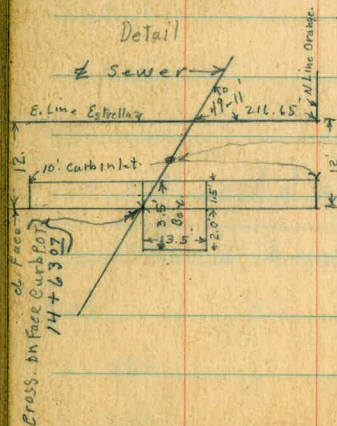 Detail
℄ Sewer
N. Line Orange.
E. Line Estrella
49°-11'
216.65'
12.'
12'
10' curb inlet.
3.5'
Box
1.5'
2.0'
3.5'
Face
Cross. on Face Curb Pot.
14+63.07